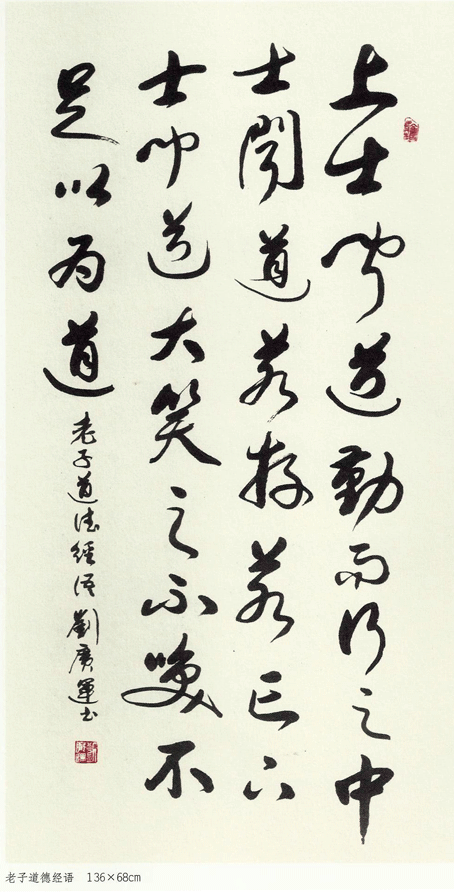 上士聞道勤而行之中
士聞道若存若亡下
士聞道大笑之不咲不
足以為道
老子道德經語 劉廣運書
老子道德经语 136×68cm